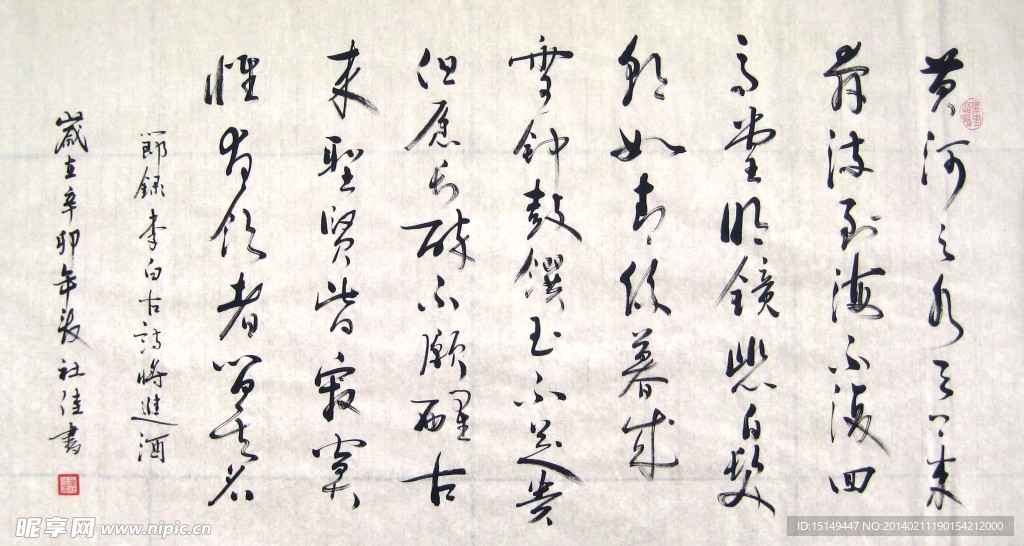 黄河之水天上来
奔流到海不復回
高堂明鏡悲白髮
朝如青絲暮成
雪鐘鼓饌玉不足貴
但愿長醉不願醒古
来聖賢皆寂寞
惟有飲者留其名
節録李白古詩將進酒
歲在辛卯年張社佳書
昵享网 www.nipic.cn
ID:15149447 NO:20140211190154212000